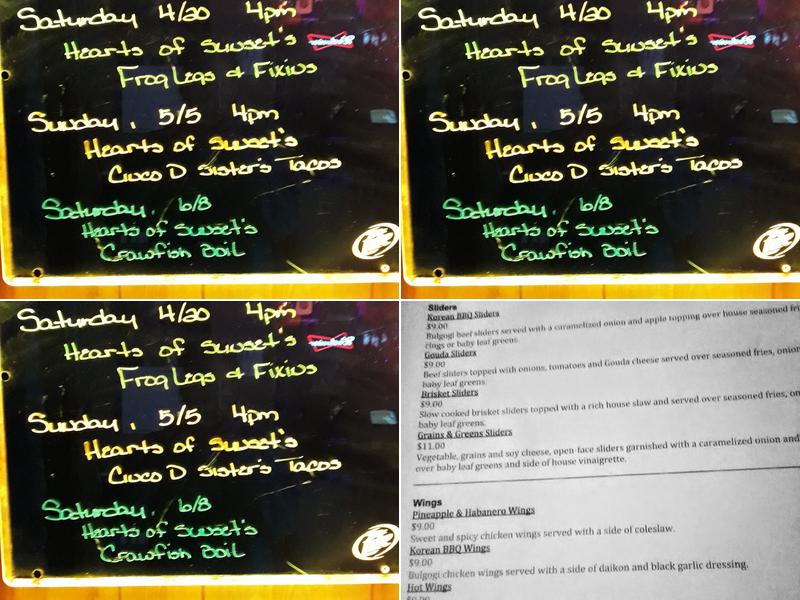 Saturday 4/20 4pm
Hearts of Sunset's
Frog Legs & Fixins
Sunday, 5/5 4pm
Hearts of Sunset's
Cinco D Sister's Tacos
Saturday, 6/8
Hearts of Sunset's
Crawfish Boil
Saturday 4/20 4pm
Hearts of Sunset's
Frog Legs & Fixins
Sunday, 5/5 4pm
Hearts of Sunset's
Cinco D Sister's Tacos
Saturday, 6/8
Hearts of Sunset's
Crawfish Boil
Saturday 4/20 4pm
Hearts of Sunset's
Frog Legs & Fixins
Sunday, 5/5 4pm
Hearts of Sunset's
Cinco D Sister's Tacos
Saturday, 6/8
Hearts of Sunset's
Crawfish Boil
Sliders
Korean BBQ Sliders
$9.00
Bulgogi beef sliders served with a caramelized onion and apple topping over house seasoned fri
rings or baby leaf greens.
Gouda Sliders
$9.00
Beef sliders topped with onions, tomatoes and Gouda cheese served over seasoned fries, onion
baby leaf greens.
Brisket Sliders
$9.00
Slow cooked brisket sliders topped with a rich house slaw and served over seasoned fries, on
baby leaf greens.
Grains & Greens Sliders
$11.00
Vegetable, grains and soy cheese, open-face sliders garnished with a caramelized onion and
over baby leaf greens and side of house vinaigrette.
Wings
Pineapple & Habanero Wings
$9.00
Sweet and spicy chicken wings served with a side of coleslaw.
Korean BBQ Wings
$9.00
Bulgogi chicken wings served with a side of daikon and black garlic dressing.
Hot Wings
$9.00